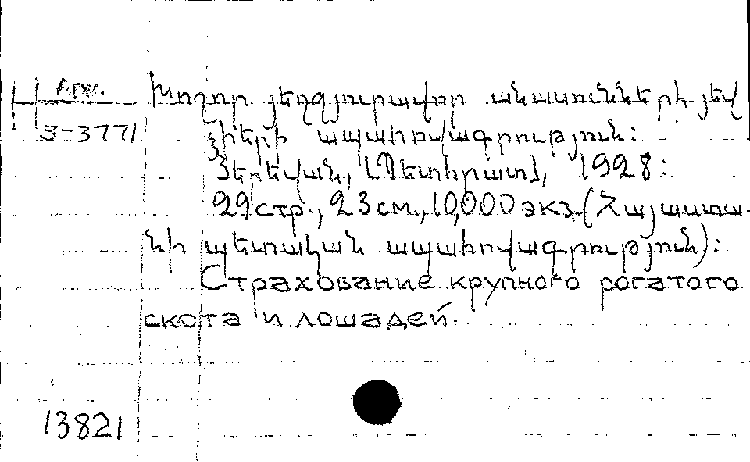 Арм.
3-3771
Խոշոր յեղջյուրավոր անասունների յեվ
ձիերի ապահովագրություն:
Յերեվան, [Պետհրատ], 1928:
29 стр., 23 см., 10,000 экз. (Հայաստա-
նի պետական ապահովագրություն):
Страхование крупного рогатого
скота и лошадей.
13821